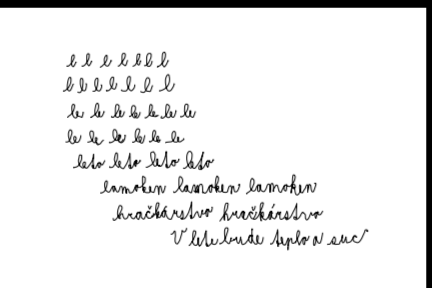 l l l l l l l
l l l l l l l
le le le le le le le
le le le le le le
leto leto leto leto
lamohen lamohen lamohen
hračkárstvo hračkárstvo
V lete bude teplo a suc